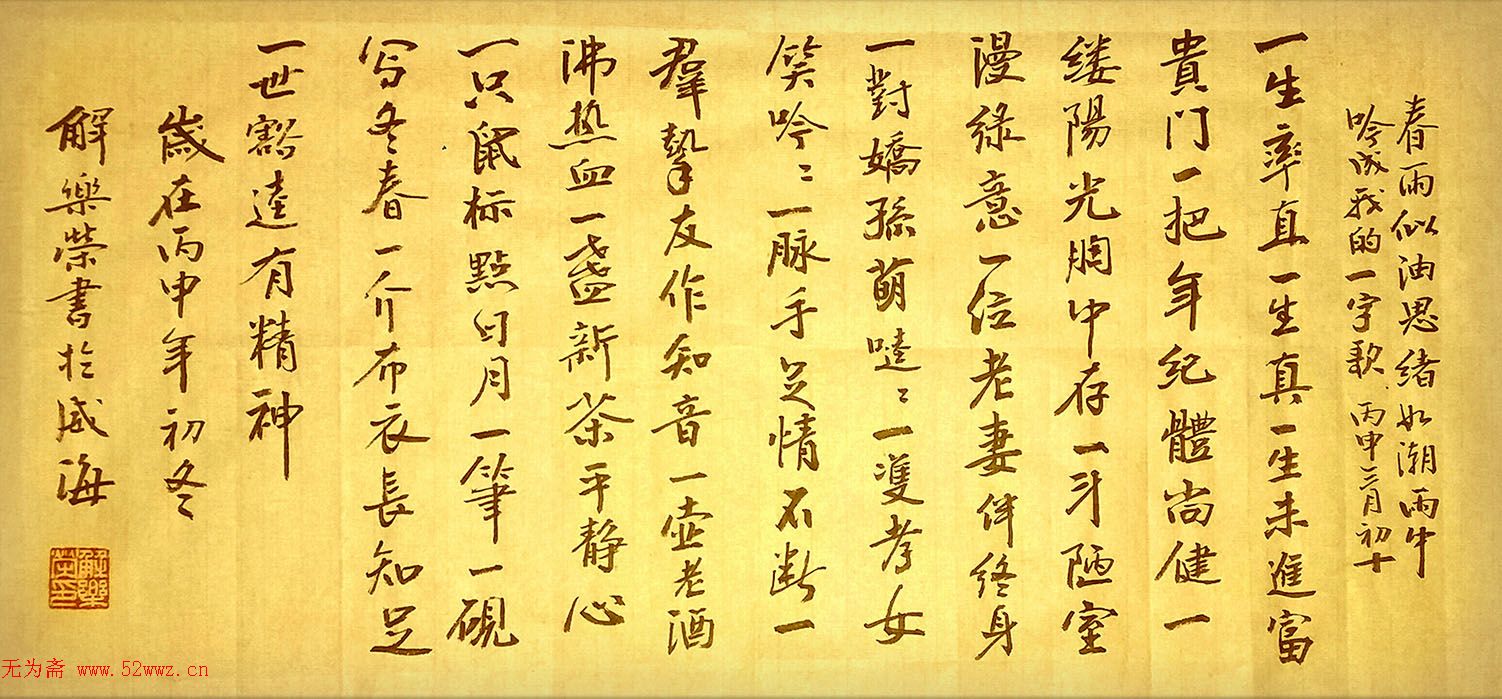 春雨似油思绪如潮雨中
吟成我的一字歌 丙申三月初十
一生率真一生真一生未進富
貴门一把年纪體尚健一
缕陽光胸中存一斗陋室
漫绿意一位老妻伴终身
一對嬌孫萌哒〻一雙孝女
笑吟〻一脉手足情不断一
羣摯友作知音一壶老酒
沸热血一盏新茶平静心
一只鼠标點日月一筆一硯
写冬春一介布衣長知足
一世豁達有精神
歲在丙申年初冬
解樂榮書於威海
无为斋 www.52wwz.cn